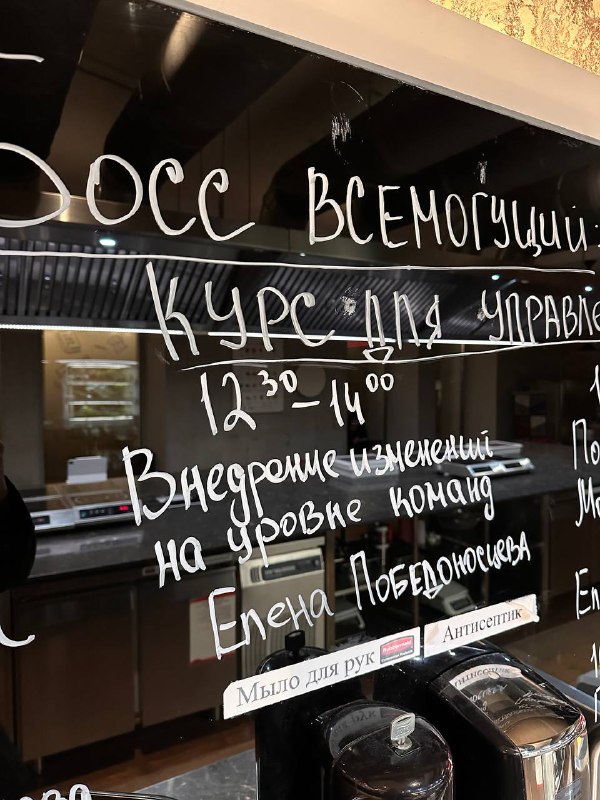 БОСС ВСЕМОГУЩИЙ:
КУРС ДЛЯ УПРАВЛЕ
12 30 - 14 00
Внедрение изменений
на уровне команд
Елена Победоносцева
Мыло для рук
Антисептик